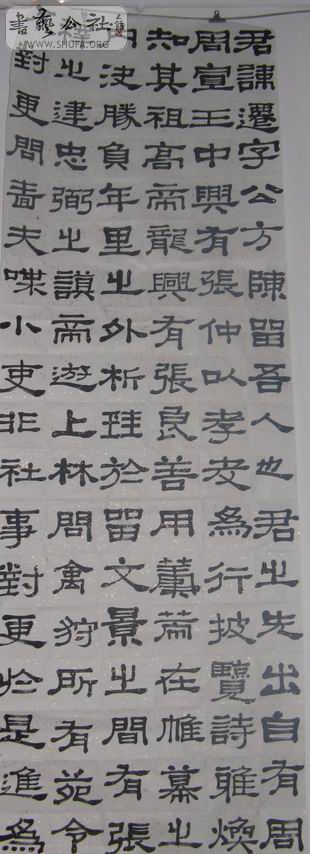 君諱遷字公方陳留吾人也君之先出自有周
周宣王中興有張仲以孝友為行披覽詩雅煥
知其祖高帝龍興有張良善用籌策在帷幕之
內決勝負年里之外析珪於留文景之間有張
釋之建忠弼之謨帝遊上林問禽狩所有苑令
對更問嗇夫喋小吏非社事對更於是進為
書藝公社
WWW.SHUFA.ORG